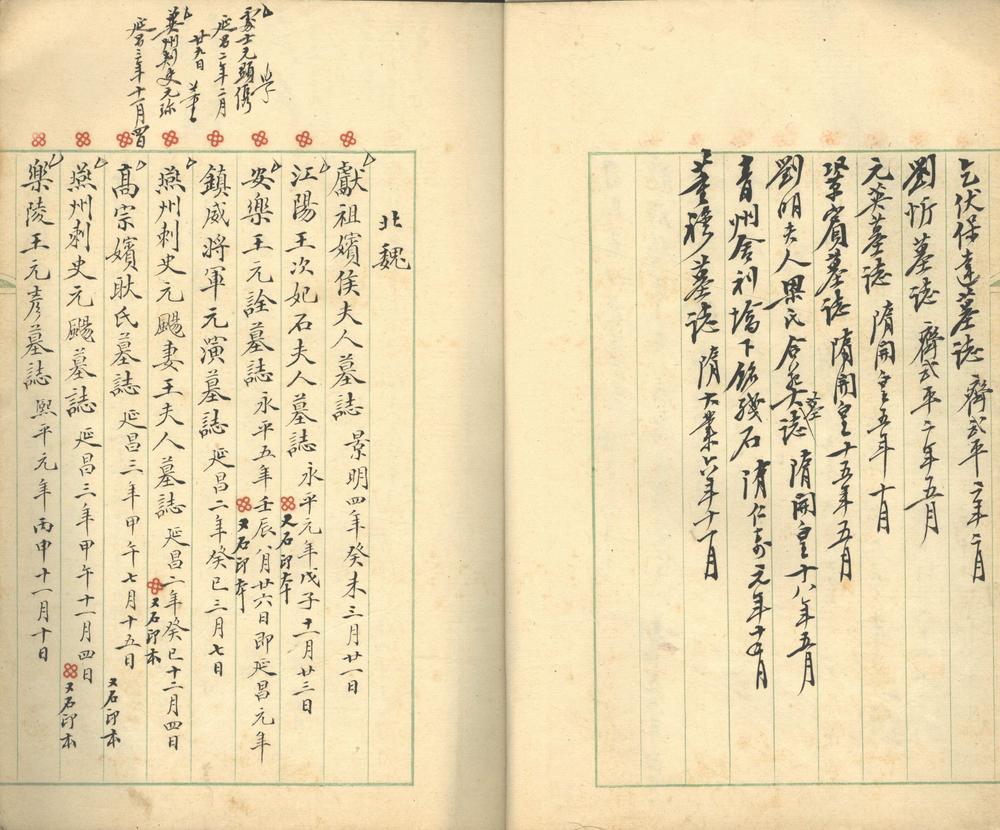 乞伏保達墓誌 齊武平二年二月
劉忻墓誌 齊武平二年五月
元英墓誌 隋開皇五年十月
鞏賓墓誌 隋開皇十五年五月
劉明夫人梁氏合葬墓誌 隋開皇十八年五月
青州舍利塔下銘殘石 隋仁壽元年十月
董穆墓誌 隋大業六年十一月
處士元顯儁
延昌二年二月
廿九日
冀州刺史元珍
延昌三年十一月四日
北魏
獻祖嬪侯夫人墓誌 景明四年癸未三月廿一日
江陽王次妃石夫人墓誌 永平元年戊子十一月廿三日
又石印本
安樂王元詮墓誌 永平五年壬辰八月廿六日即延昌元年
又石印本
鎮威將軍元演墓誌 延昌二年癸巳三月七日
燕州刺史元颺妻王夫人墓誌 延昌二年癸巳十二月四日
又石印本
高宗嬪耿氏墓誌 延昌三年甲午七月十五日
又石印本
燕州刺史元颺墓誌 延昌三年甲午十一月四日
又石印本
樂陵王元彥墓誌 熙平元年丙申十一月十日